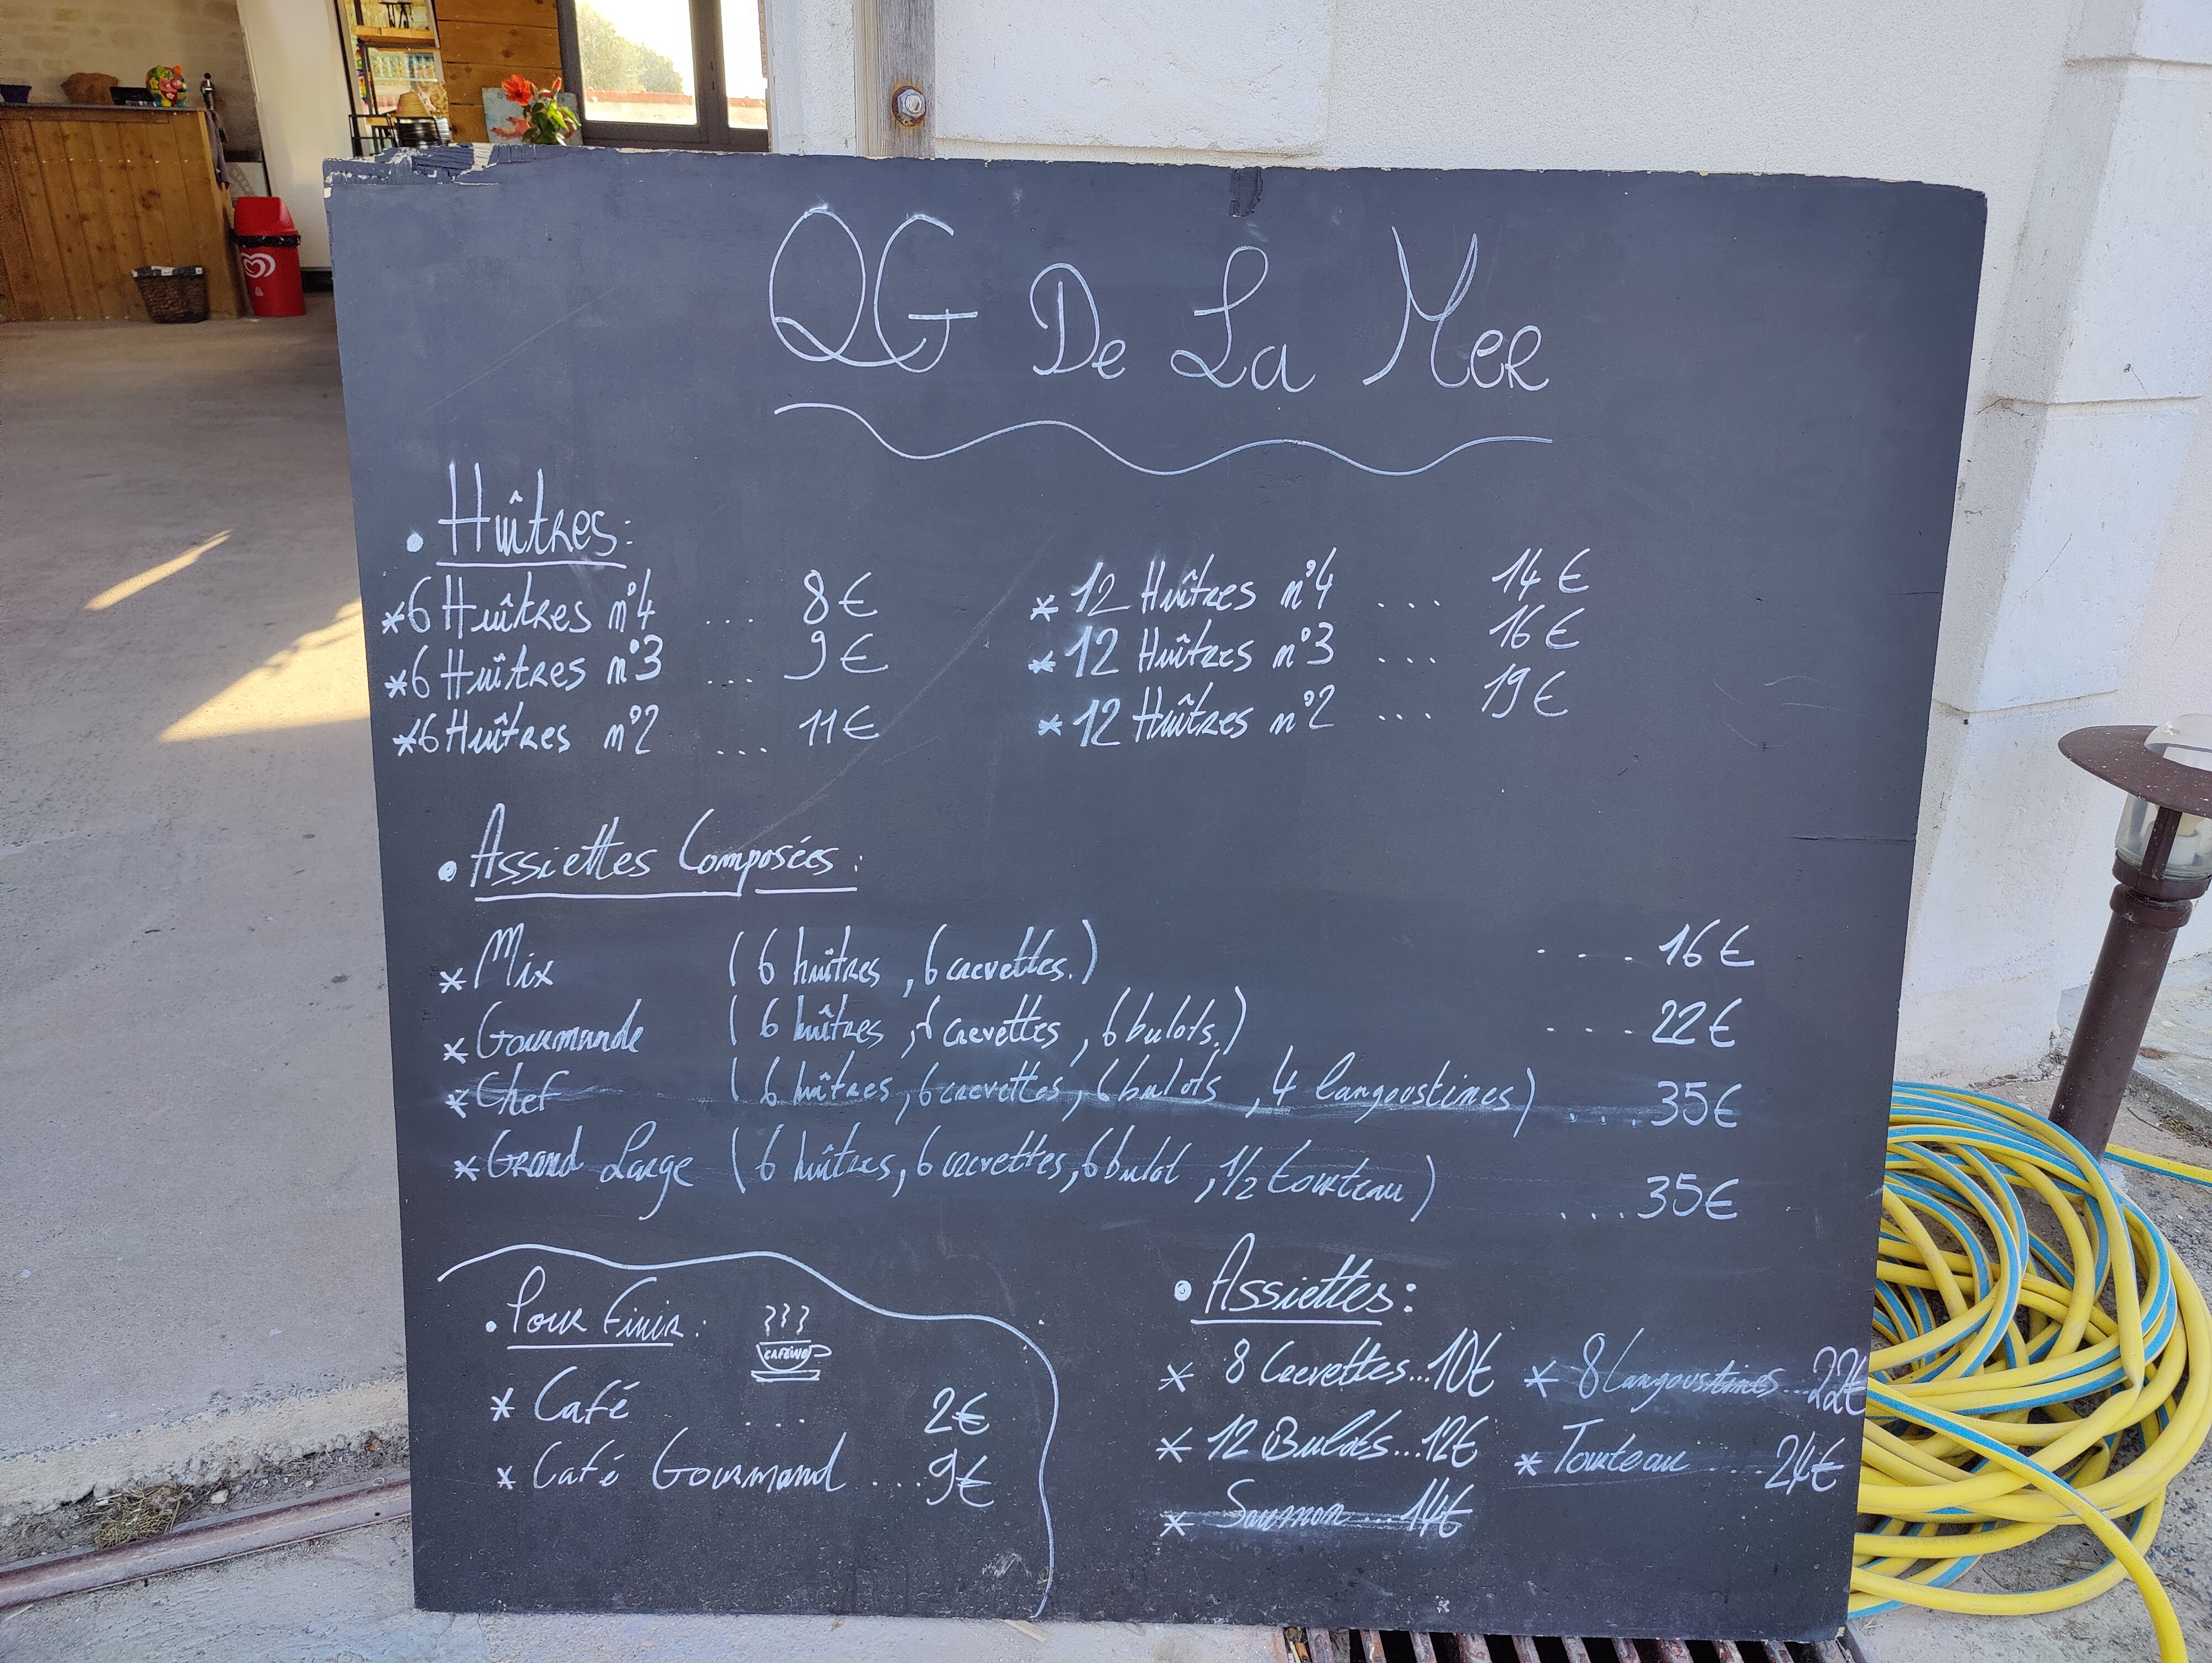 QG De La Mer
• Huîtres:
*6 Huîtres n°4 ... 8€
*6 Huîtres n°3 ... 9€
*6 Huîtres n°2 ... 11€
* 12 Huîtres n°4 ... 14€
* 12 Huîtres n°3 ... 16€
* 12 Huîtres n°2 ... 19€
• Assiettes Composées:
* Mix (6 huîtres, 6 crevettes.) .... 16€
* Gourmande (6 huîtres, 6 crevettes, 6 bulots.) .... 22€
* Chef (6 huîtres, 6 crevettes, 6 bulots, 4 langoustines) .... 35€
* Grand Large (6 huîtres, 6 crevettes, 6 bulot, 1/2 tourteau) ... 35€
• Pour Finir:
CAFEINE
* Café ... 2€
* Café Gourmand ... 9€
• Assiettes:
* 8 Crevettes...10€
* 12 Bulots...12€
* Saumon...14€
* 8 Langoustines...22€
* Tourteau ....24€